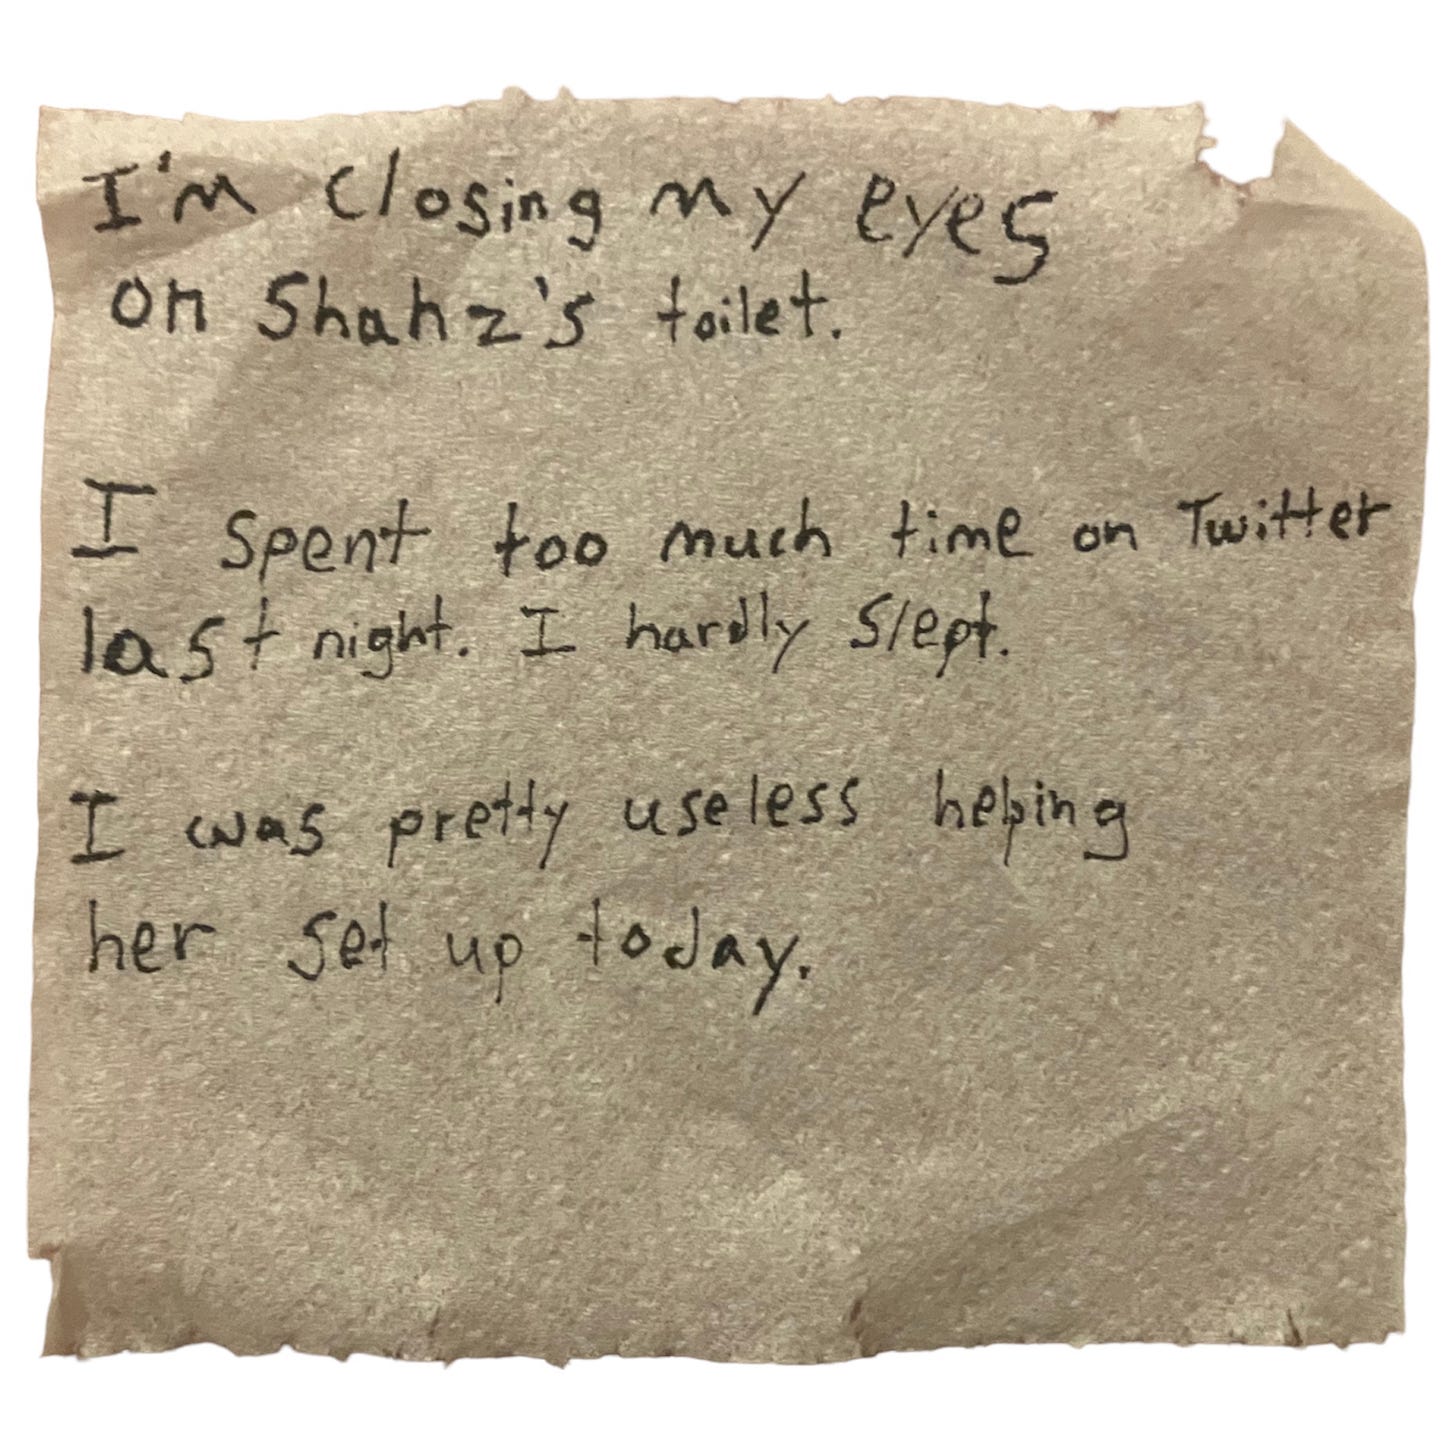 I'm closing my eyes
on Shahz's toilet.
I spent too much time on Twitter
last night. I hardly slept.
I was pretty useless helping
her set up today.